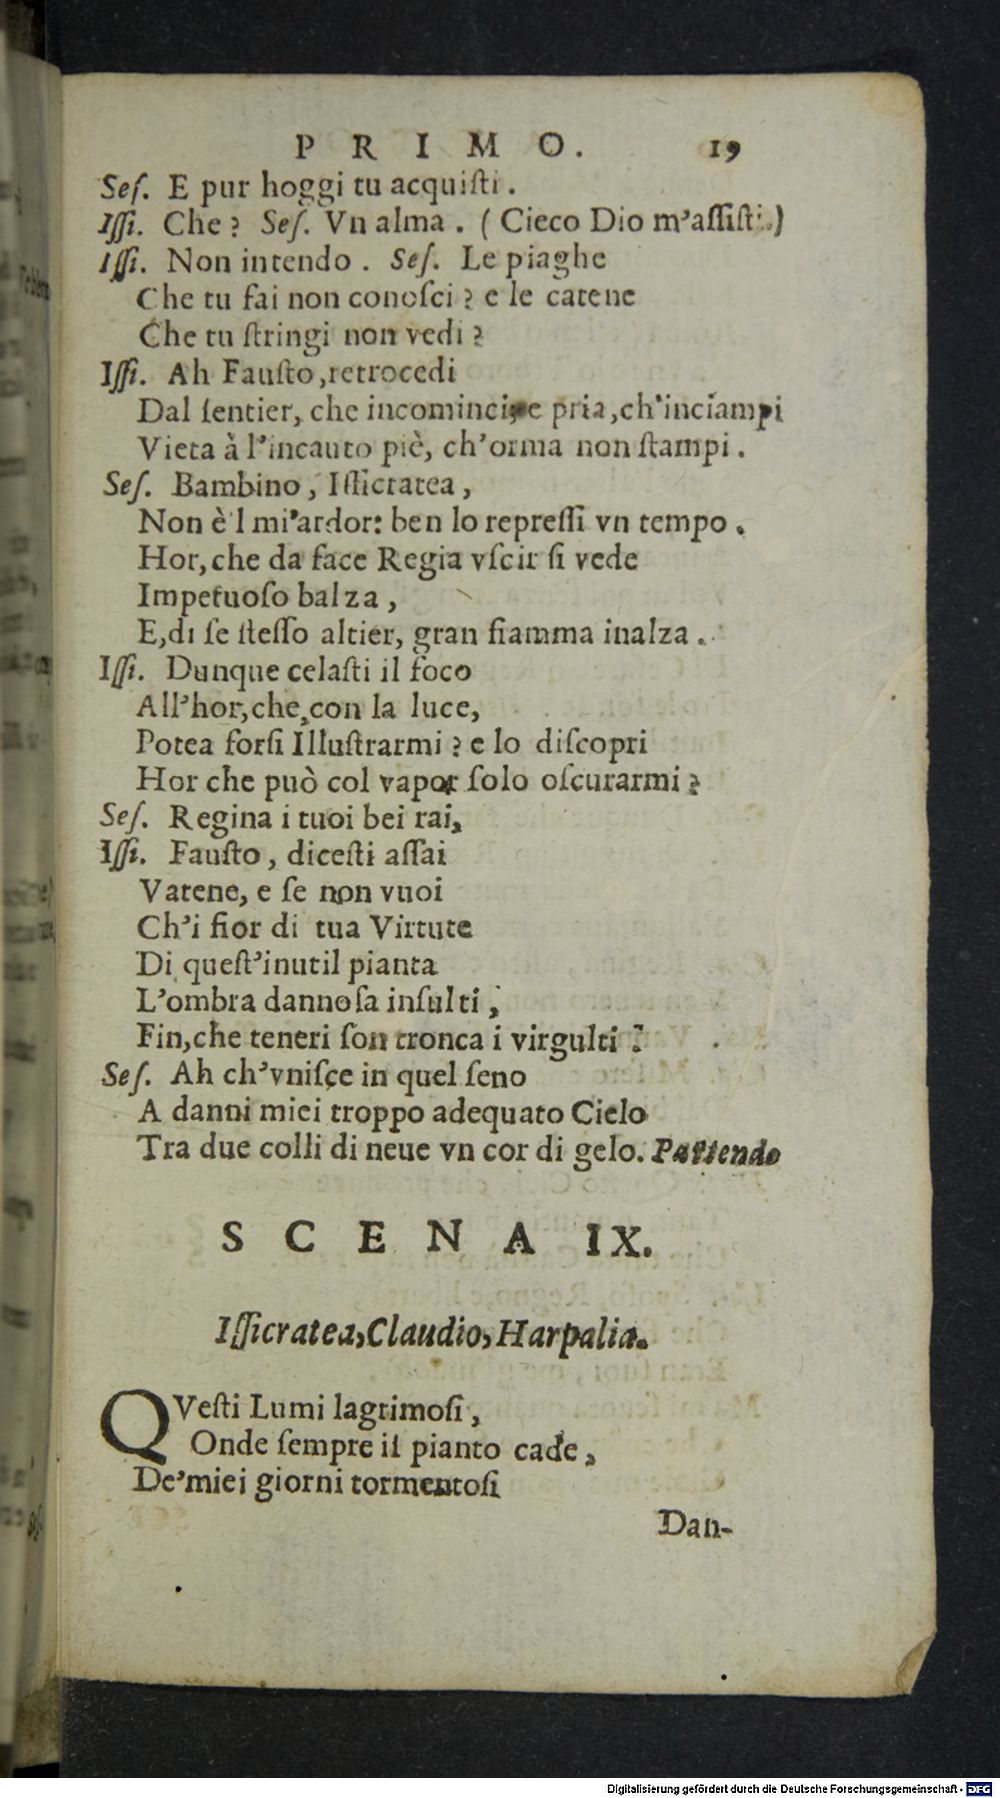 PRIMO. 19
Seſ. E pur hoggi tu acquiſti.
Iſſi. Che? Seſ. Vn alma. (Cieco Dio m'aſſiſti.)
Iſſi. Non intendo. Seſ. Le piaghe
Che tu fai non conoſci? e le catene
Che tu ſtringi non vedi?
Iſſi. Ah Fauſto, retrocedi
Dal ſentier, che incominci, e pria, ch'inciampi
Vieta à l'incauto piè, ch'orma non ſtampi.
Seſ. Bambino, Iſſicratea,
Non è'l mi'ardor: ben lo repreſſi vn tempo.
Hor, che da face Regia vſcir ſi vede
Impetuoſo balza,
E, di ſe ſteſſo altier, gran fiamma inalza.
Iſſi. Dunque celaſti il foco
All'hor, che, con la luce,
Potea forſi Illuſtrarmi? e lo diſcopri
Hor che può col vapor ſolo oſcurarmi?
Seſ. Regina i tuoi bei rai,
Iſſi. Fauſto, diceſti aſſai
Vatene, e ſe non vuoi
Ch'i fior di tua Virtute
Di queſt'inutil pianta
L'ombra dannoſa inſulti,
Fin, che teneri ſon tronca i virgulti.
Seſ. Ah ch'vniſce in quel ſeno
A danni miei troppo adequato Cielo
Tra due colli di neue vn cor di gelo. Partendo
SCENA IX.
Iſſicratea, Claudio, Harpalia.
QVeſti Lumi lagrimoſi,
Onde ſempre il pianto cade,
De'miei giorni tormentoſi
Dan-
Digitalisierung gefördert durch die Deutsche Forschungsgemeinschaft - DFG